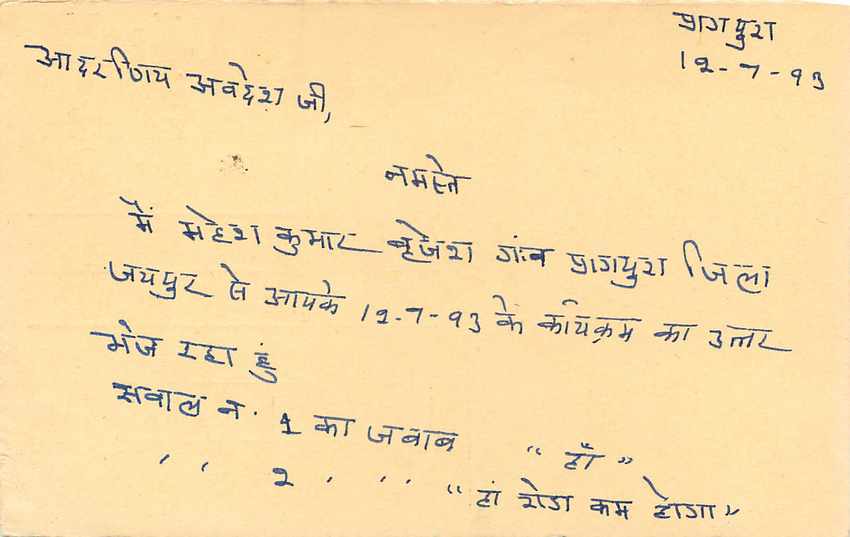 प्रागपुरा
12-7-93
आदरणिय अवदेश जी,
नमस्ते
मैं महेश कुमार बृजेश गांव प्रागपुरा जिला
जयपुर से आपके 12-7-93 के कार्यक्रम का उत्तर
भेज रहा हुं
सवाल न. 1 का जबाब “ हाँ ”
,, 2 . ,, “ हां थोडा कम होगा ”